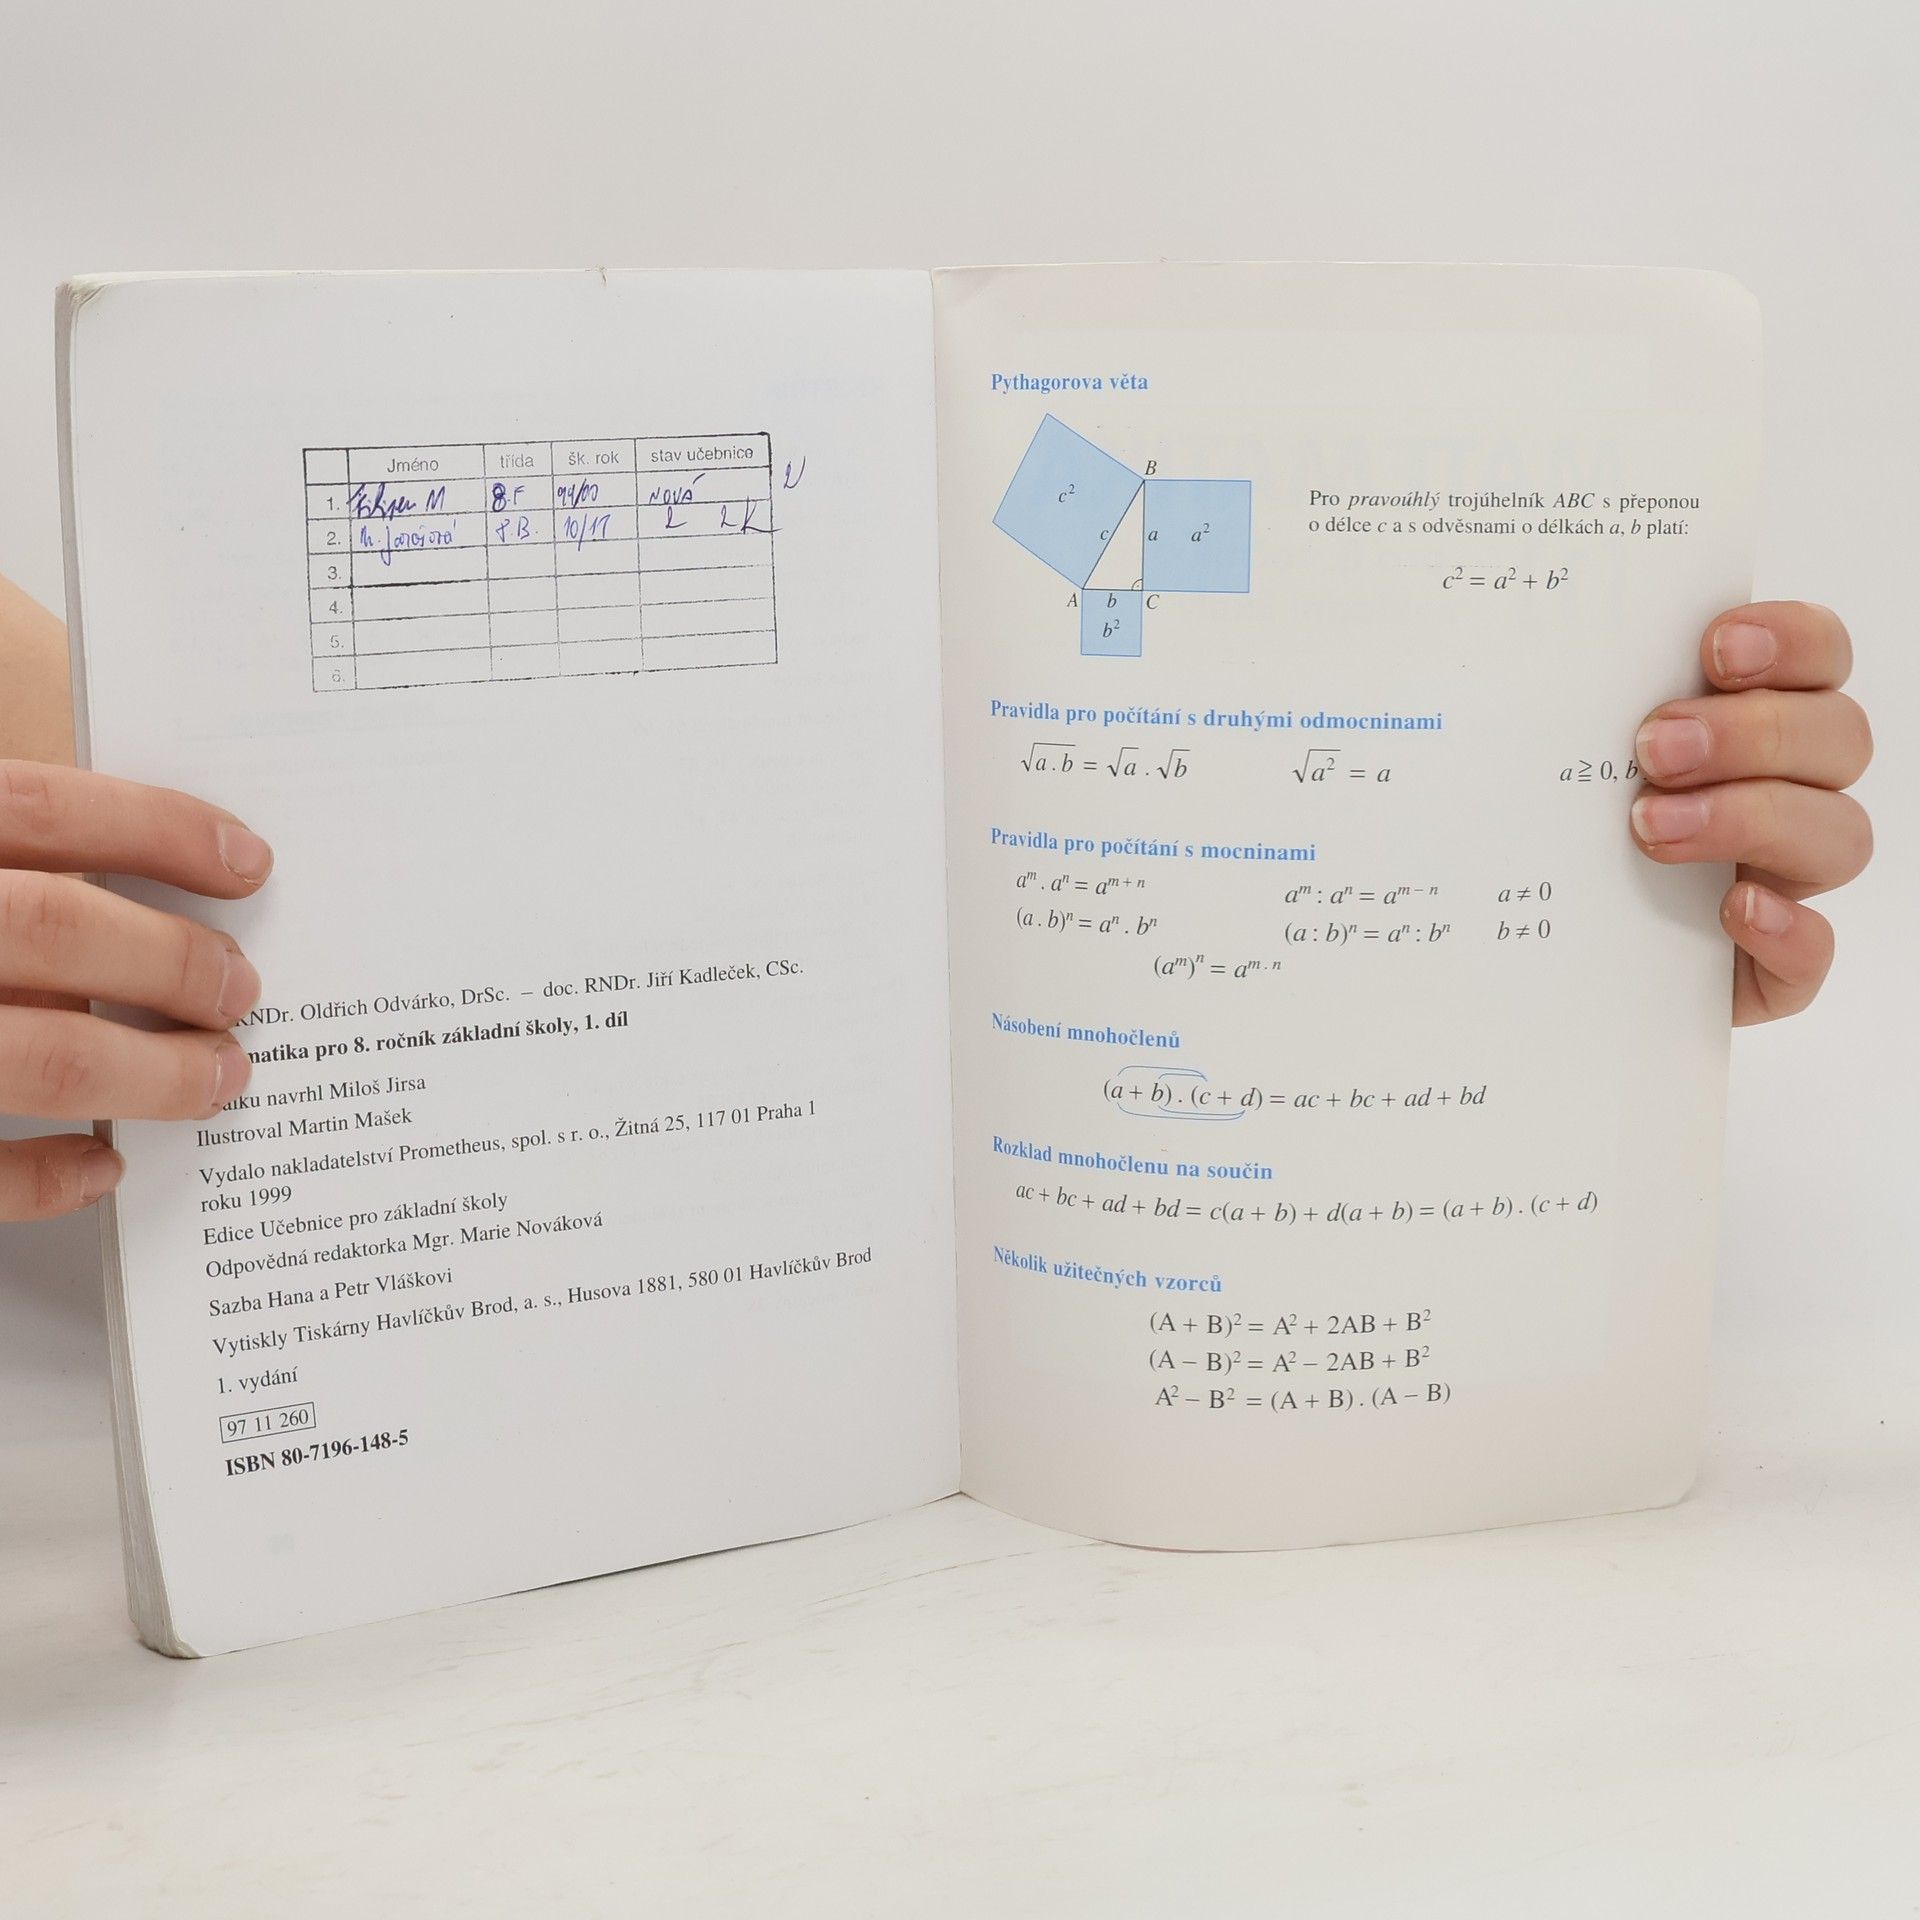 Jméno třída šk. rok stav učebnice
1. M 8.F 99/00 NOVÁ
2. M. 8.B. 10/11 2 2
3.
4.
5.
6.
RNDr. Oldřich Odvárko, DrSc. – doc. RNDr. Jiří Kadleček, CSc.
pro 8. ročník základní školy, 1. díl
navrhl Miloš Jirsa
Ilustroval Martin Mašek
Vydalo nakladatelství Prometheus, spol. s r. o., Žitná 25, 117 01 Praha 1
roku 1999
Edice Učebnice pro základní školy
Odpovědná redaktorka Mgr. Marie Nováková
Sazba Hana a Petr Vláškovi
Vytiskly Tiskárny Havlíčkův Brod, a. s., Husova 1881, 580 01 Havlíčkův Brod
1. vydání
97 11 260
ISBN 80-7196-148-5
Pythagorova věta
B
c²
c a a²
A b C
b²
Pro pravoúhlý trojúhelník ABC s přeponou
o délce c a s odvěsnami o délkách a, b platí:
c² = a² + b²
Pravidla pro počítání s druhými odmocninami
√(a . b) = √a . √b √(a²) = a a ≧ 0, b
Pravidla pro počítání s mocninami
aᵐ . aⁿ = aᵐ⁺ⁿ aᵐ : aⁿ = aᵐ⁻ⁿ a ≠ 0
(a . b)ⁿ = aⁿ . bⁿ (a : b)ⁿ = aⁿ : bⁿ b ≠ 0
(aᵐ)ⁿ = aᵐ·ⁿ
Násobení mnohočlenů
(a + b) . (c + d) = ac + bc + ad + bd
Rozklad mnohočlenu na součin
ac + bc + ad + bd = c(a + b) + d(a + b) = (a + b) . (c + d)
Několik užitečných vzorců
(A + B)² = A² + 2AB + B²
(A – B)² = A² – 2AB + B²
A² – B² = (A + B) . (A – B)